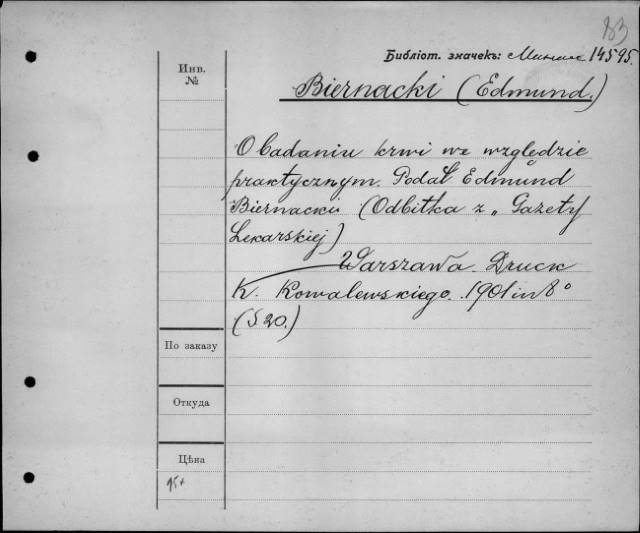 83
Библіот. значекъ: 14595.
Инв.
№
Biernacki (Edmund.)
O badaniu krwi we względzie
praktycznym. Podał Edmund
Biernacki (Odbitka z „Gazety
Lekarskiej)
Warszawa. Druck
K. Kowalewskiego. 1901 in 8°
(S 20.)
По заказу
Откуда
Цѣна